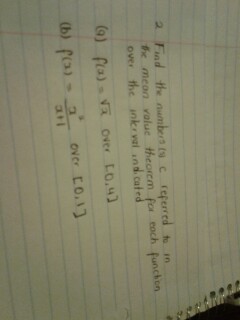 2 Find the number(s) c referred to in
the mean value theorem for each function
over the interval indicated
(a) f(x) = √x over [0,4]
(b) f(x) = x² / x+1 over [0,1]